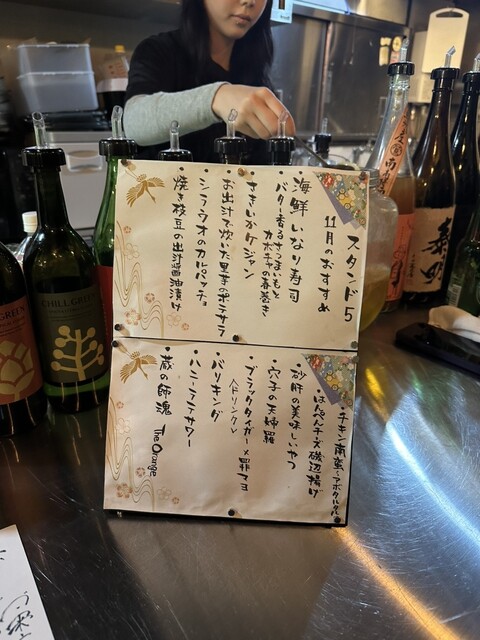 スタンド5
11月のおすすめ
・海鮮いなり寿司
・バター香るさつまいもと
カボチャの春巻き
・さきいかケジャン
・お出汁で炊いた里芋のポテサラ
・シラウオのカルパッチョ
・焼き枝豆の出汁醤油漬け
・チキン南蛮〜アボタルタル
・はんぺんチーズ磯辺揚げ
・砂肝の美味しいやつ
・穴子の天婦羅
・ブラックタイガー×罪マヨ
〈ドリンク〉
・バリキング
・ハニーラテサワー
・蔵の師魂 The Orange
CHILL GREEN